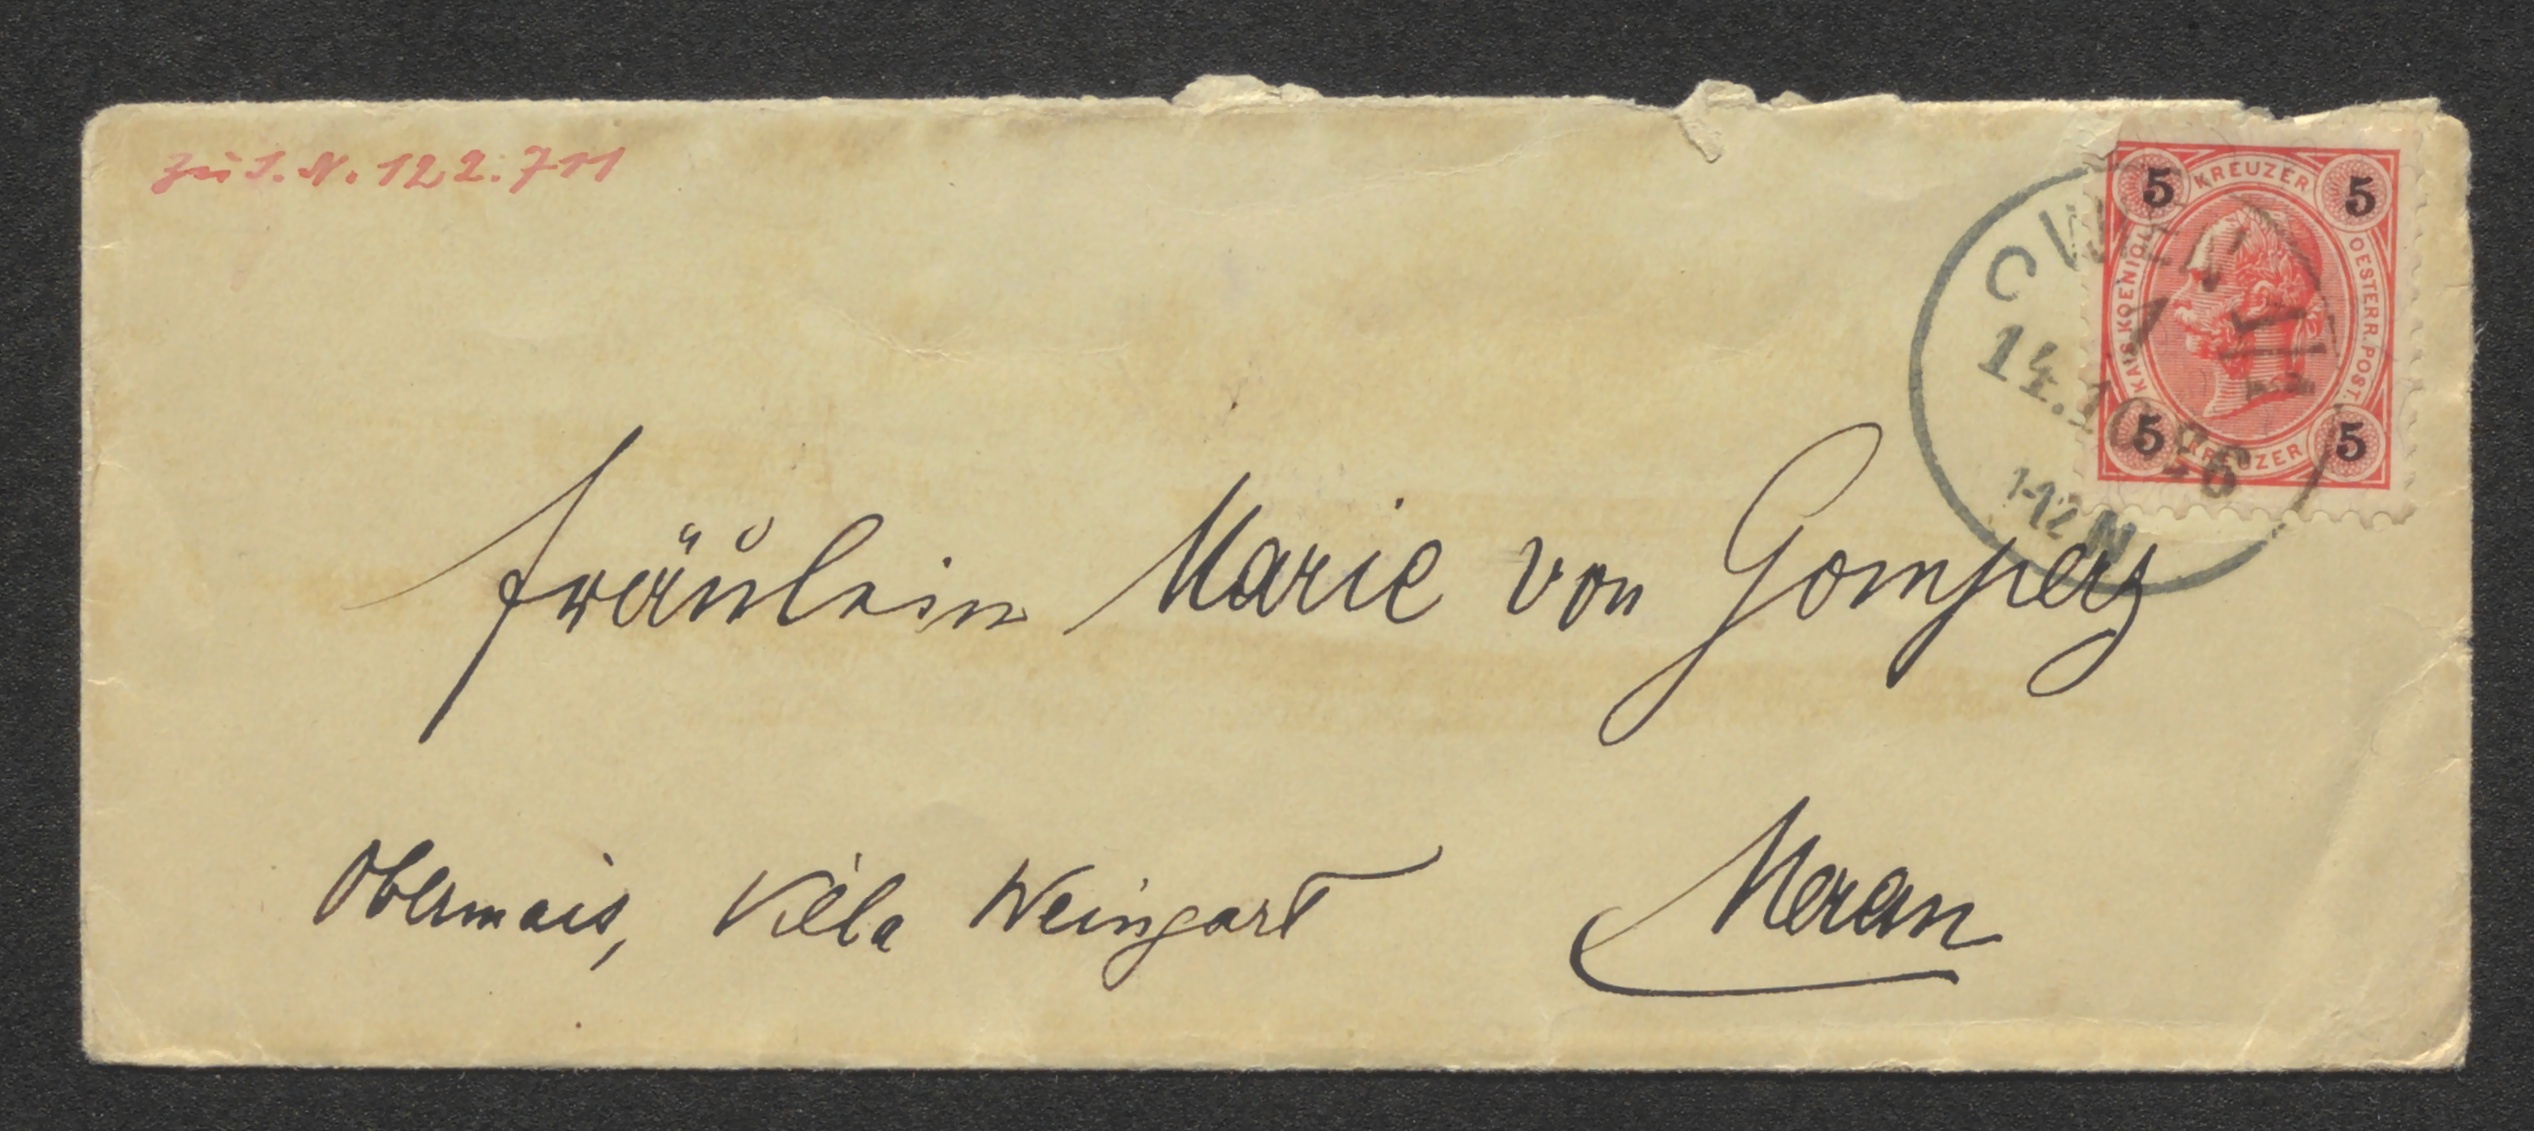 zu I. N. 122.711
KREUZER
5 5
KAIS. KOENIGL. OESTERR. POST.
5 5
KREUZER
WIEN
1
14.10.96
Fräulein Marie von Gomperz
Obermais, Villa Weingart Meran